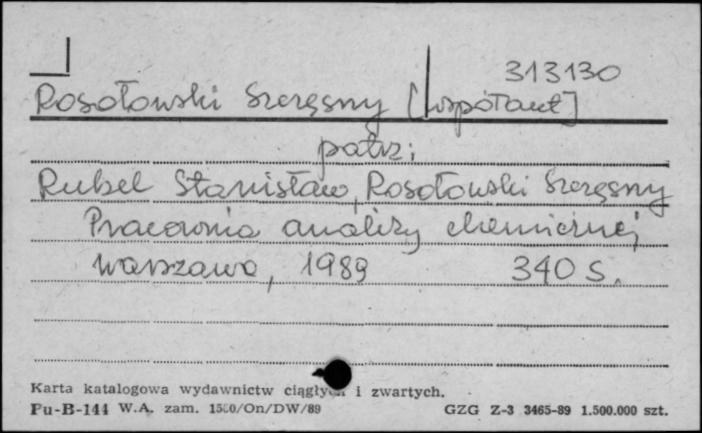 313130
Rosołowski Szczęsny [współaut]
patrz:
Rubel Stanisław, Rosołowski Szczęsny
Pracownia analizy chemicznej
Warszawa, 1989 340 s.
Karta katalogowa wydawnictw ciągłych i zwartych.
Pu-B-144 W.A. zam. /On/DW/89 GZG Z-3 3465-89 1.500.000 szt.